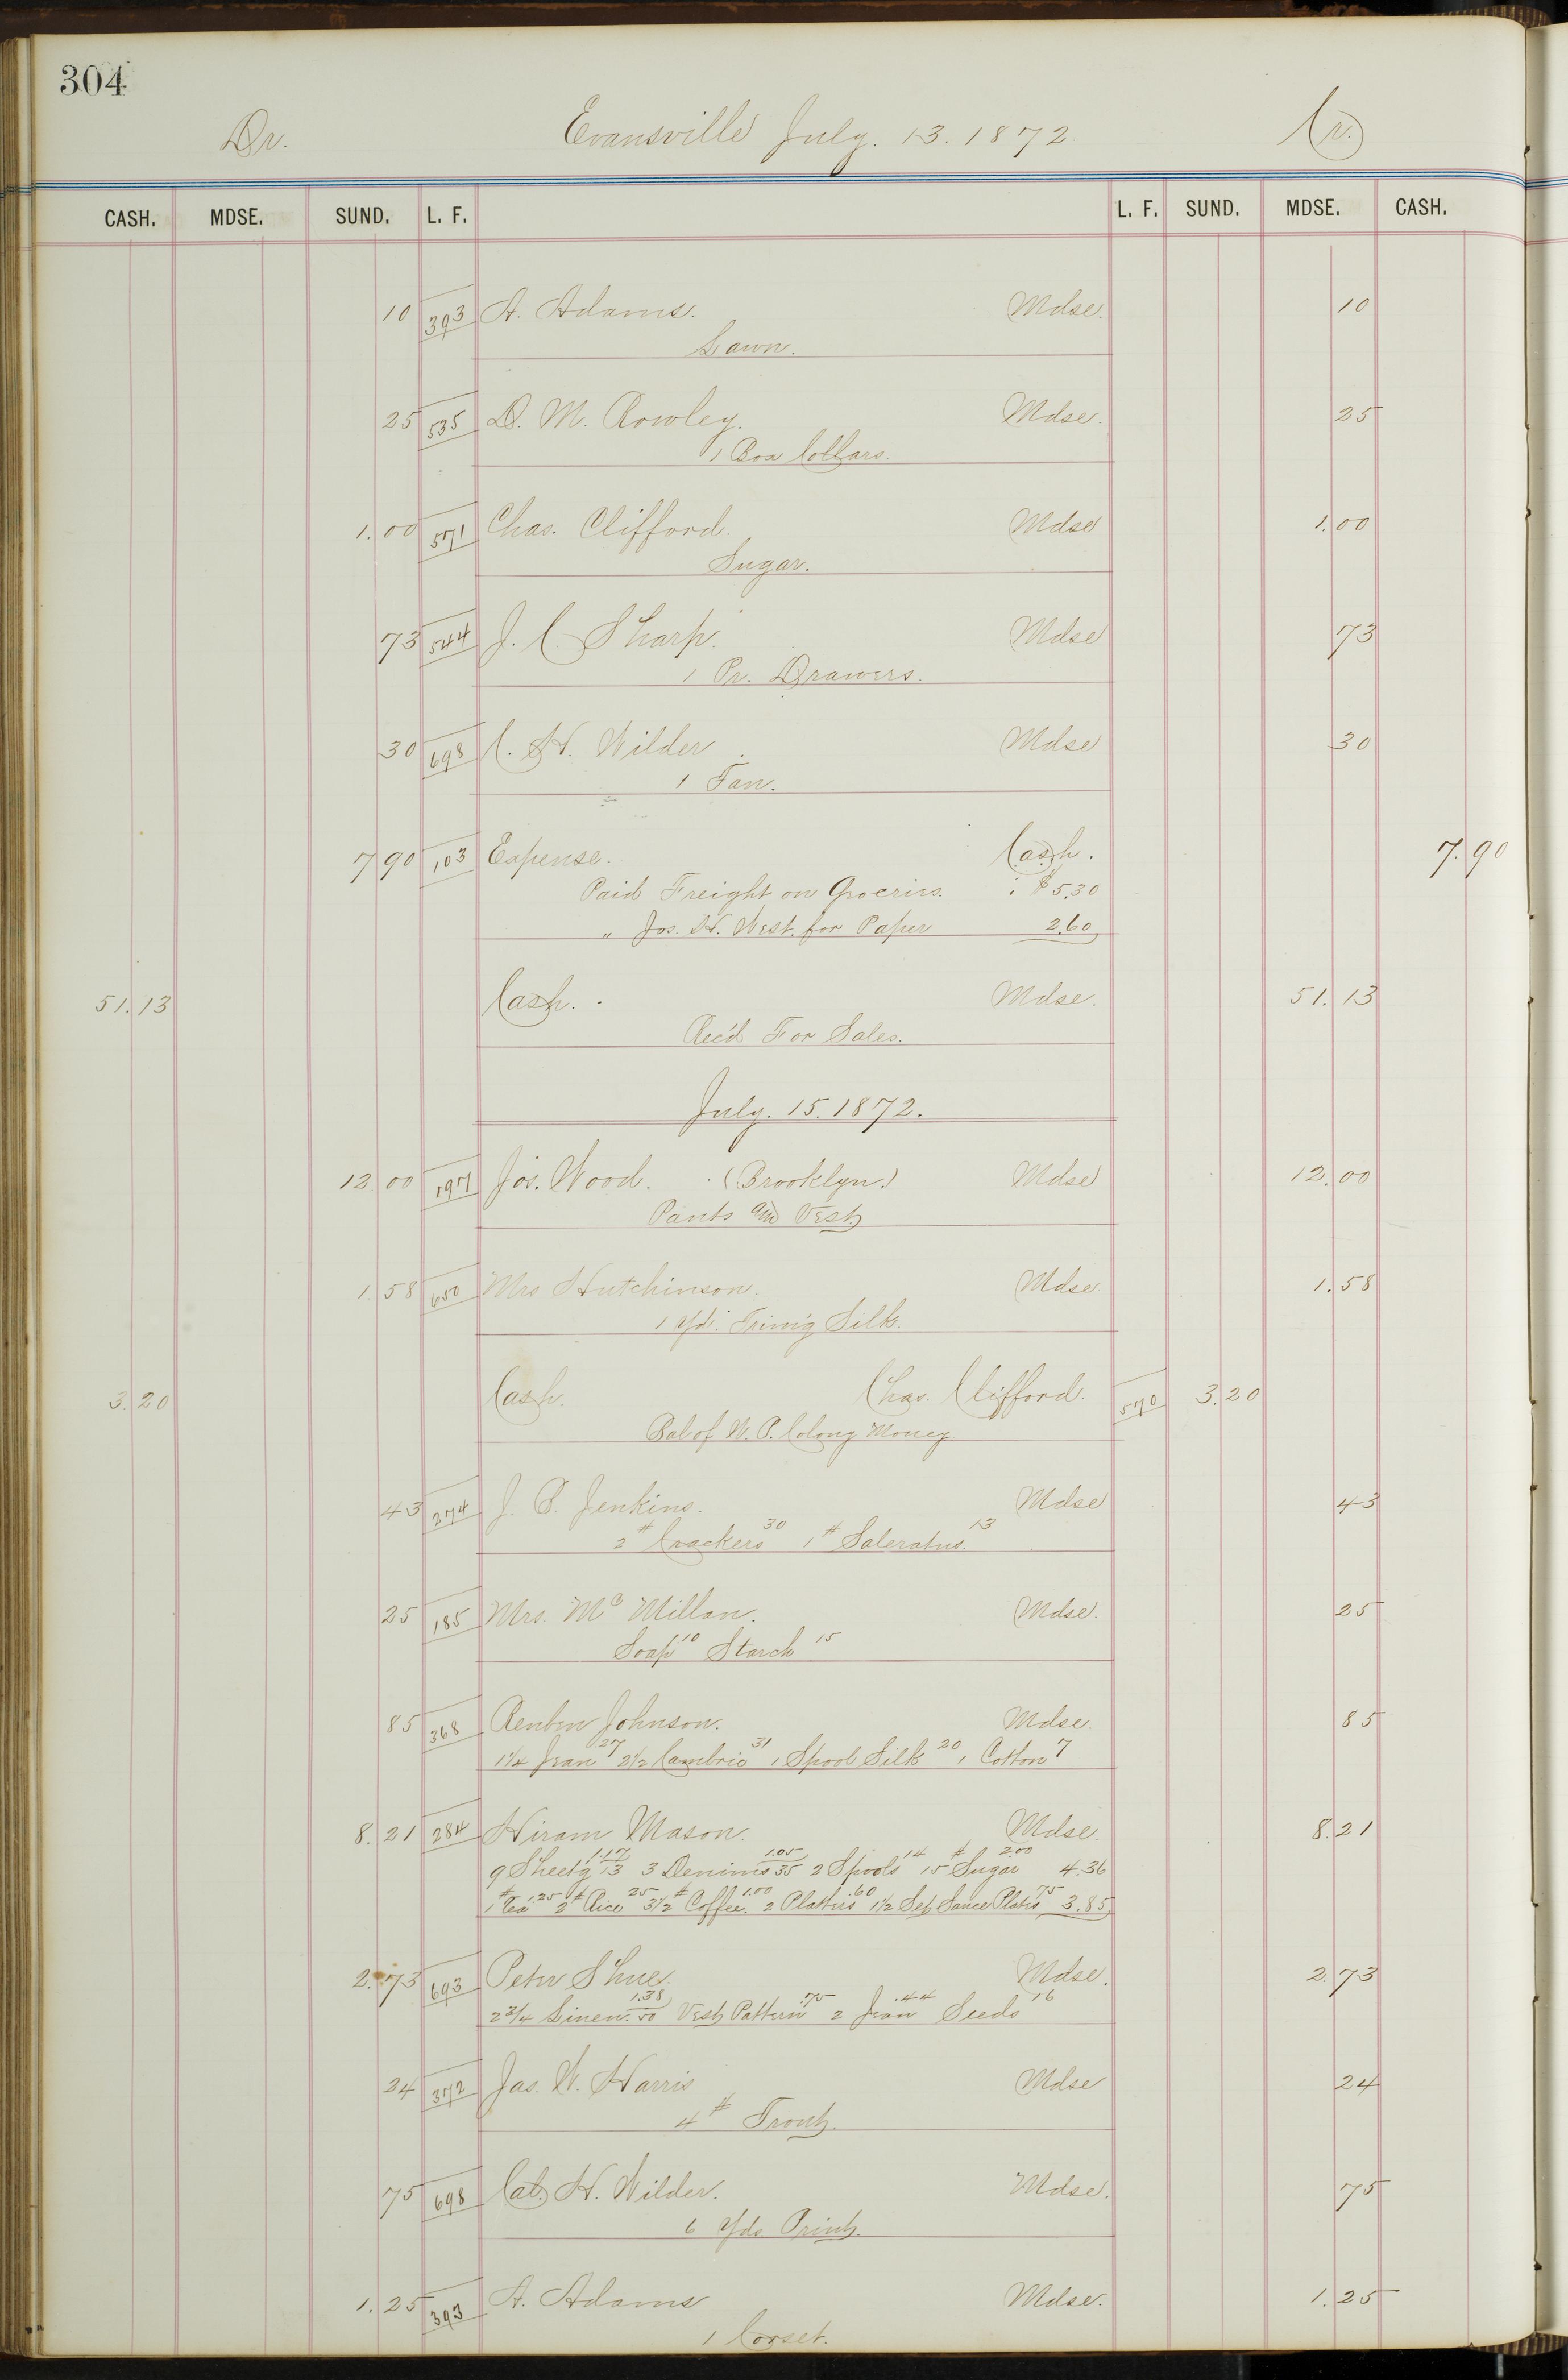 304
Dr. Evansville July. 13. 1872. Cr.
CASH. MDSE. SUND. L. F. L. F. SUND. MDSE. CASH.
10 393 A. Adams. Mdse. 10
Lawn.
25 535 D. M. Rowley. Mdse. 25
1 Box Collars.
1.00 571 Chas. Clifford. Mdse 1.00
Sugar.
73 544 J. C. Sharp. Mdse 73
1 Pr. Drawers.
30 698 C. H. Wilder Mdse 30
1 Fan.
7 90 103 Expense. Cash. 7.90
Paid Freight on Groceries. $5.30
" Jos. H. West. for Paper 2.60
51.13 Cash. Mdse. 51.13
Rec'd For Sales.
July. 15. 1872.
12.00 197 Jos. Wood. (Brooklyn.) Mdse 12.00
Pants and Vest
1.58 650 Mrs Hutchinson. Mdse. 1.58
1 yd. Trim'g Silk.
3.20 Cash. Chas. Clifford. 570 3.20
Bal of W. P. Colony Money.
43 274 J. B. Jenkins. Mdse 43
2 # Crackers 30 1 # Saleratus. 13
25 185 Mrs. Mc Millan. Mdse. 25
Soap 10 Starch 15
85 368 Reuben Johnson. Mdse. 85
1 1/4 Jean 27 2 1/2 Cambric 31 1 Spool Silk 20 1 Cotton 7
8.21 284 Hiram Mason. Mdse. 8.21
9 Sheet'g 1.17 13 3 Denims 1.05 35 2 Spools 14 15 # Sugar 2.00 4.36
1 # Tea 1.25 2 # Rice 25 3 1/2 # Coffee. 1.00 2 Platters .60 1 1/2 Set Sauce Plates 75 3.85
2.73 693 Peter Shue. Mdse. 2.73
2 3/4 Linen. 1.38 50 Vest Pattern .75 2 Jean .44 Seeds 16
24 372 Jas. W. Harris Mdse 24
4 # Trout.
75 698 Cal. H. Wilder. Mdse. 75
6 yds. Print.
1.25 393 A. Adams Mdse. 1.25
1 Corset.